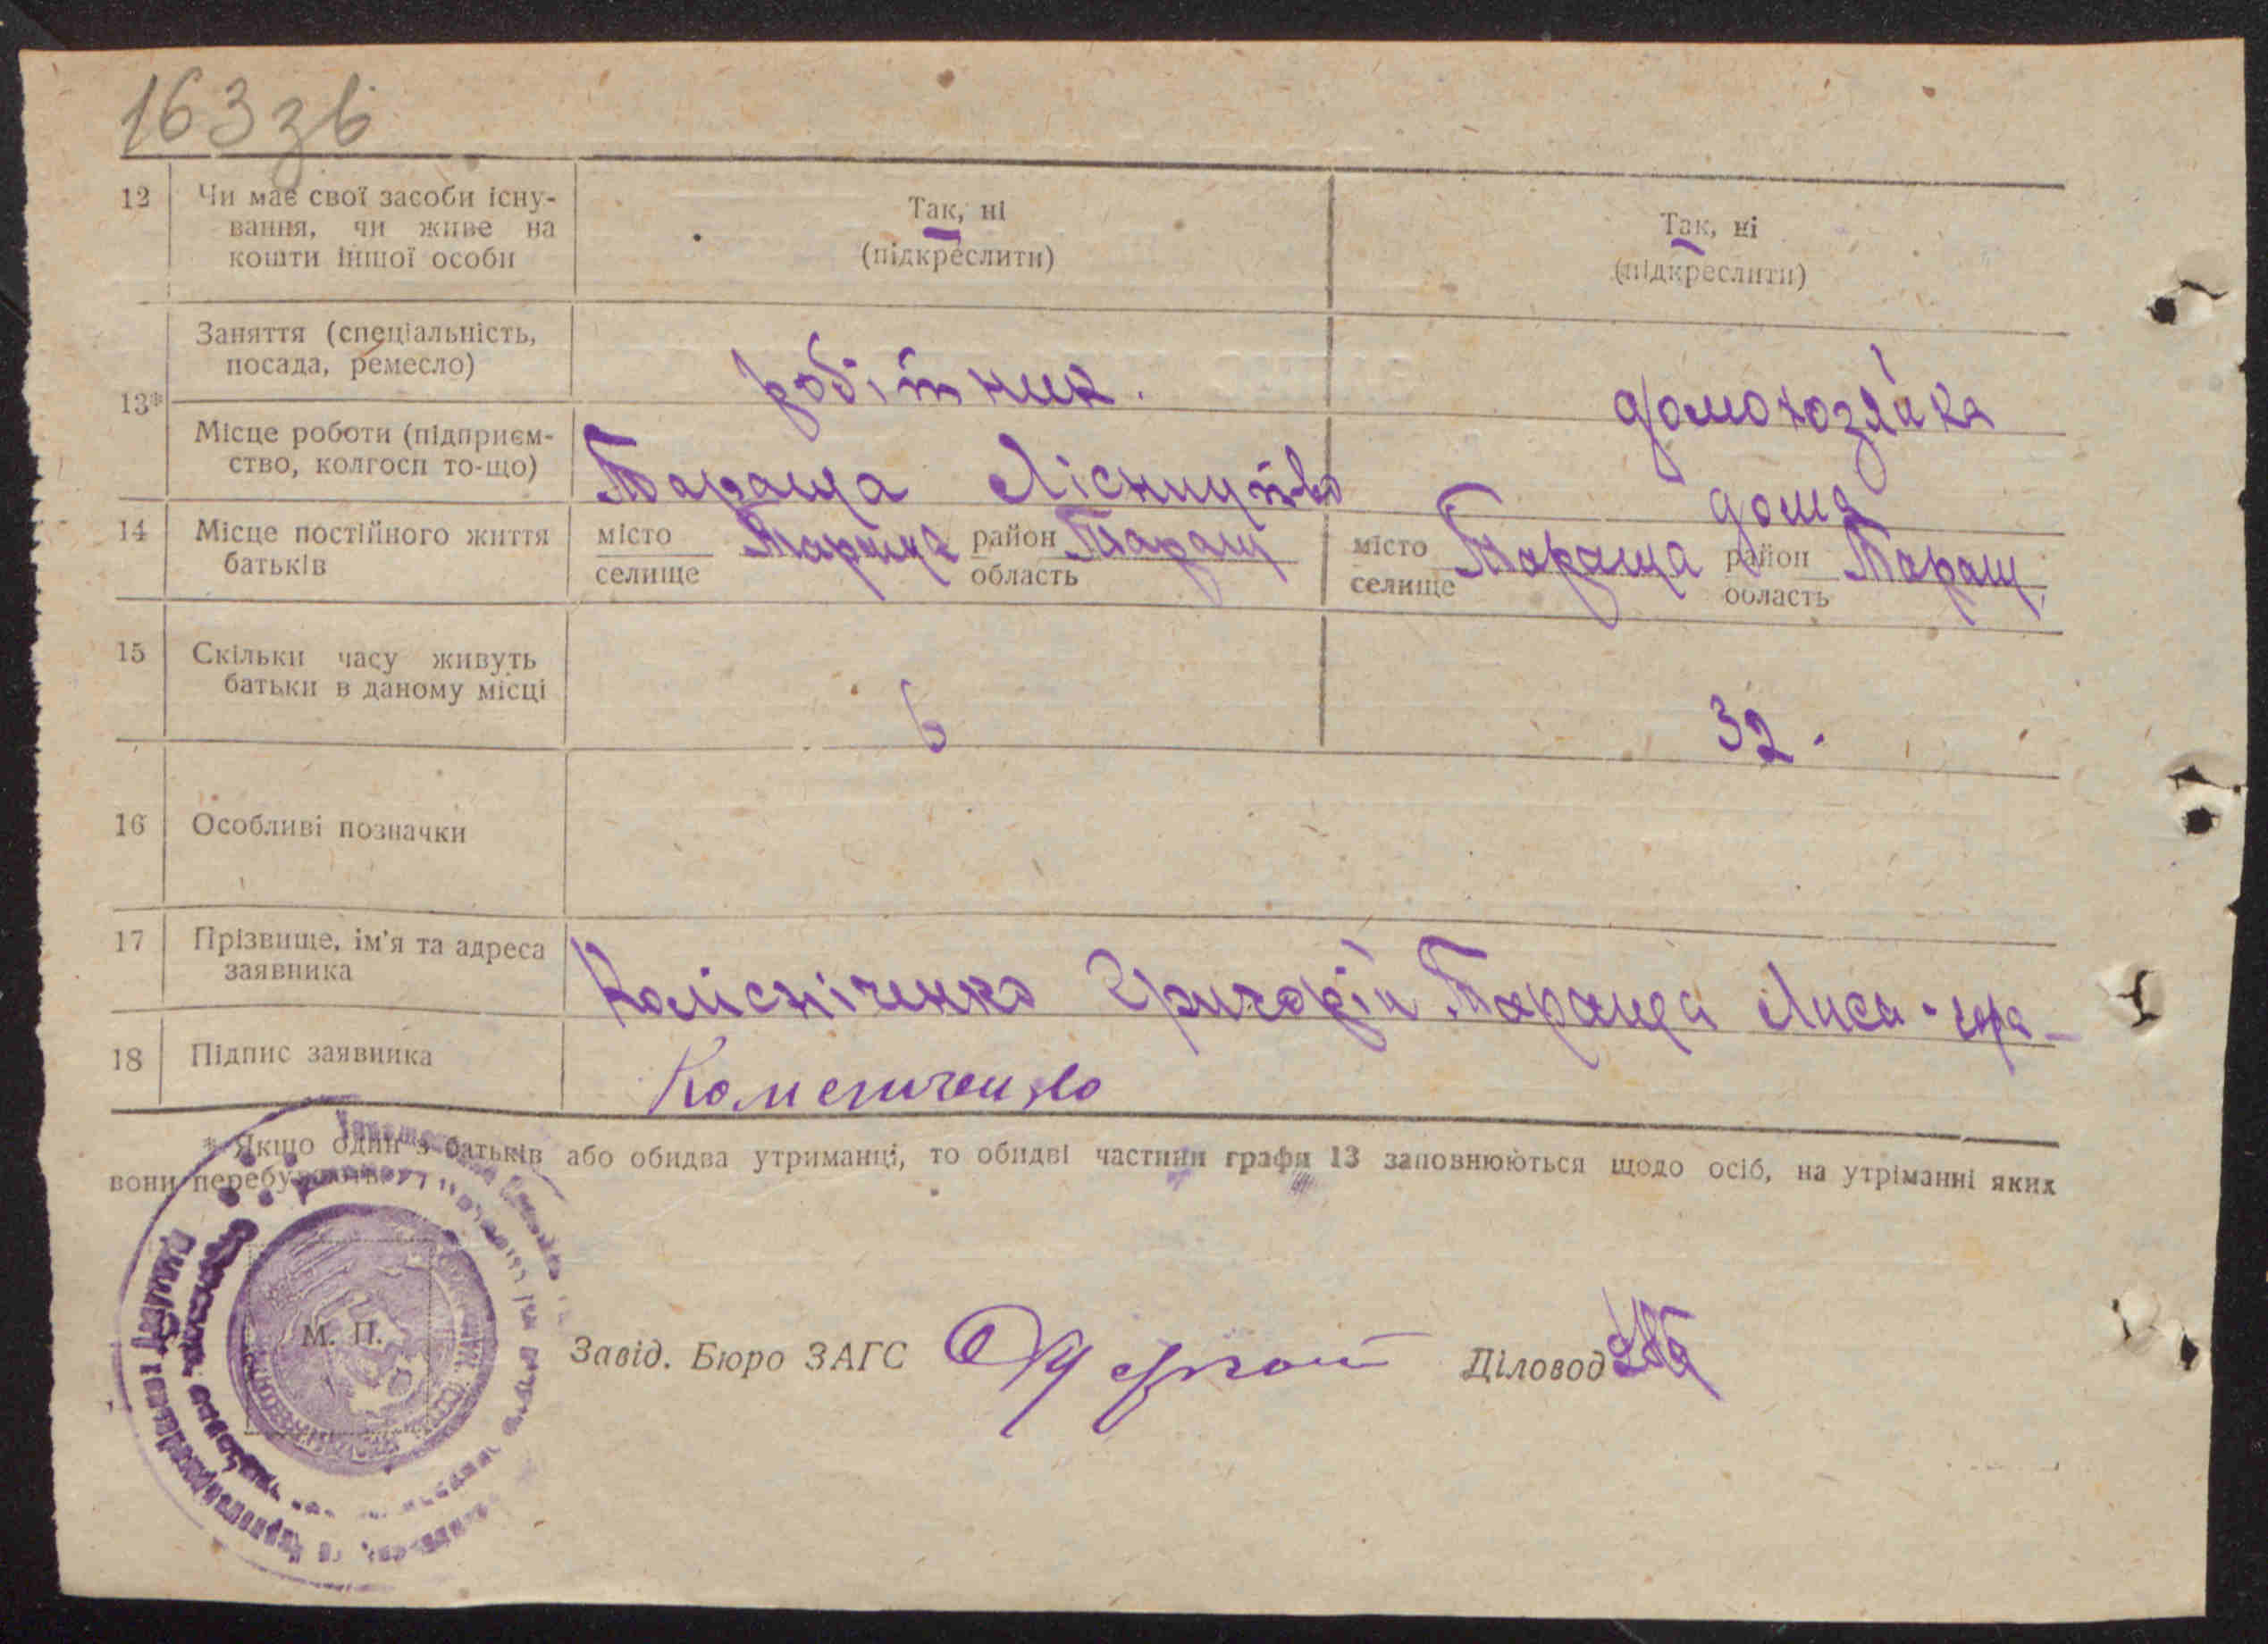 163 зв
12 Чи має свої засоби існу-
вання, чи живе на
кошти іншої особи
Так, ні
(підкреслити)
Так, ні
(підкреслити)
13*
Заняття (спеціальність,
посада, ремесло)
робітник.
домохозяйка
Місце роботи (підприєм-
ство, колгосп то-що)
Тараща Лісництво
дома
14 Місце постійного життя
батьків
місто Тараща район Таращ
селище область
місто Тараща район Таращ.
селище область
15 Скільки часу живуть
батьки в даному місці
6
32.
16 Особливі позначки
17 Прізвище, ім'я та адреса
заявника
Колісніченко Григорій Тараща Лиса-гора
18 Підпис заявника
* Якщо один з батьків або обидва утриманці, то обидві частини графи 13 заповнюються щодо осіб, на утріманні яких
вони перебувають.
М. П.
Завід. Бюро ЗАГС
Діловод